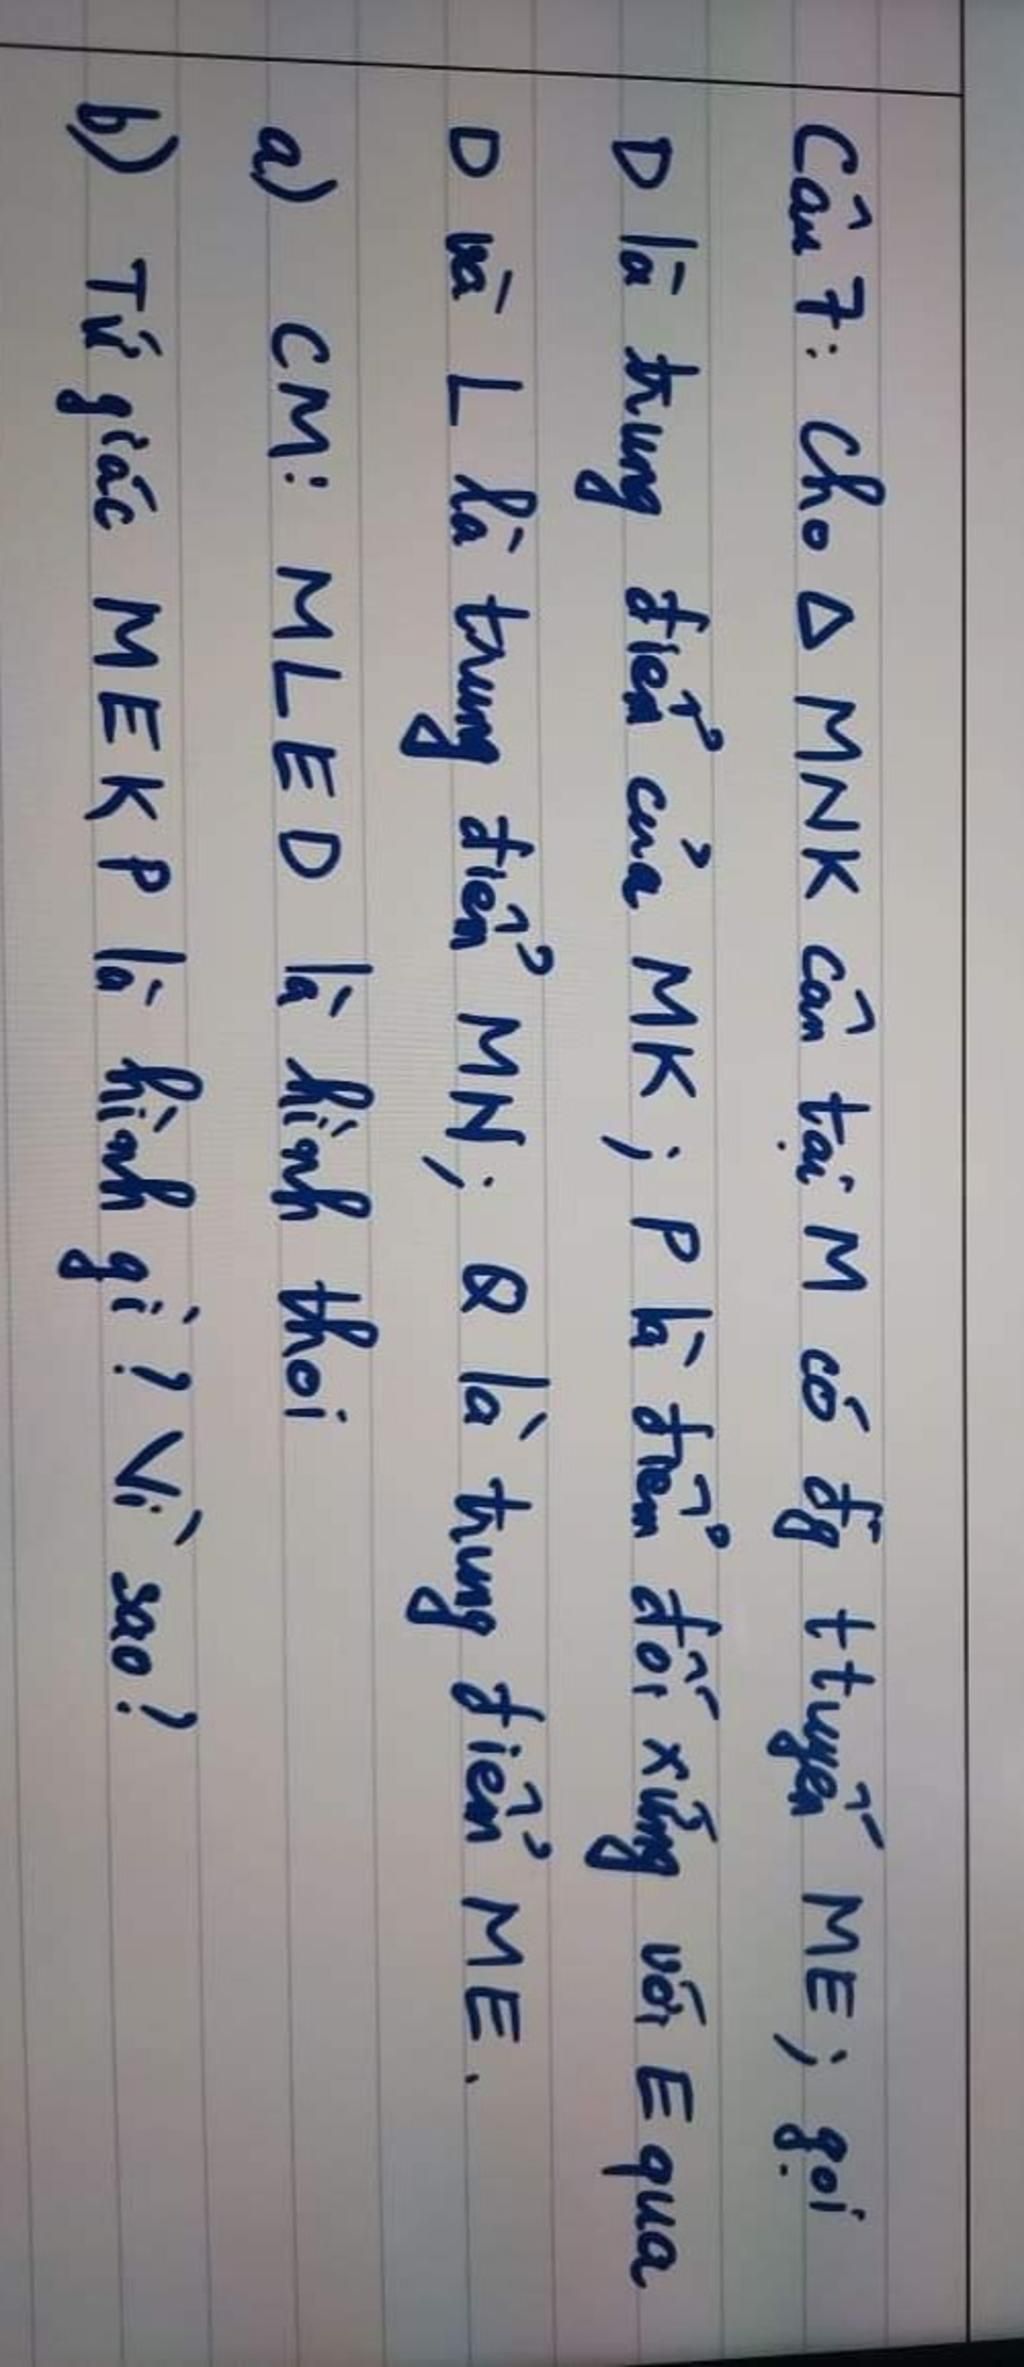 Câu 7: Cho Δ MNK cân tại M có đg ttuyến ME; gọi
D là trung điểm của MK; P là điểm đối xứng với E qua
D và L là trung điểm MN; Q là trung điểm ME.
a) CM: MLED là hình thoi
b) Tứ giác MEKP là hình gì? Vì sao?